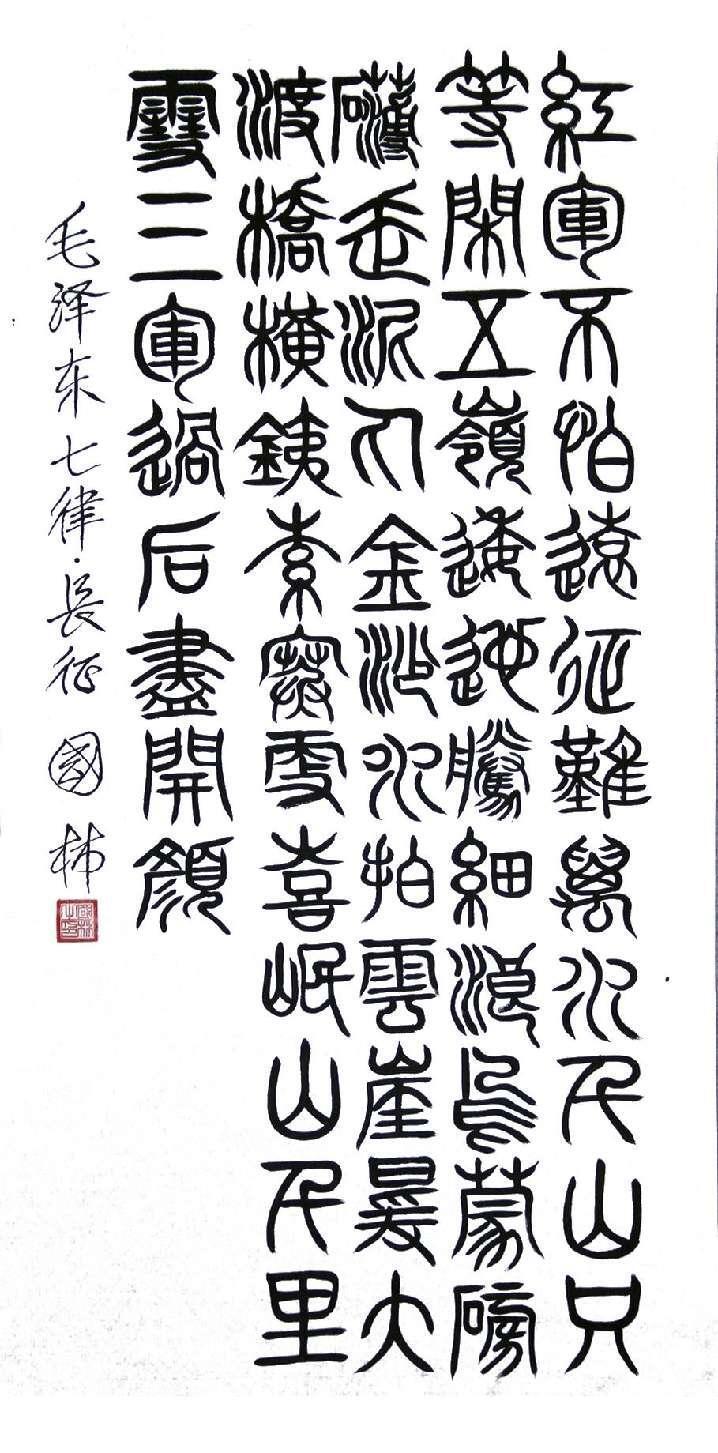 紅軍不怕遠征難萬水千山只
等閑五嶺逶迤騰細浪烏蒙磅
礴走泥丸金沙水拍雲崖暖大
渡橋橫銕索寒更喜岷山千里
雪三軍過后盡開顏
毛泽东七律·長征 國林